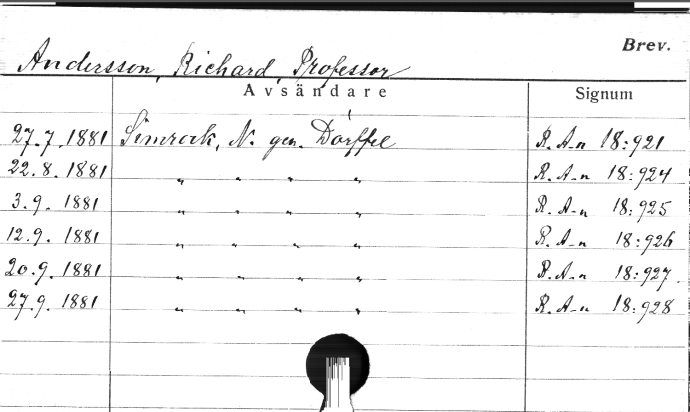 Brev.
Andersson, Richard, Professor
Avsändare Signum
27.7.1881 Simrock, N. gen. Dörffel R. A-n 18:921
22.8.1881 " " " " R. A-n 18:924
3.9.1881 " " " " R. A-n 18:925
12.9.1881 " " " " R. A-n 18:926
20.9.1881 " " " " R. A-n 18:927
27.9.1881 " " " " R. A-n 18:928